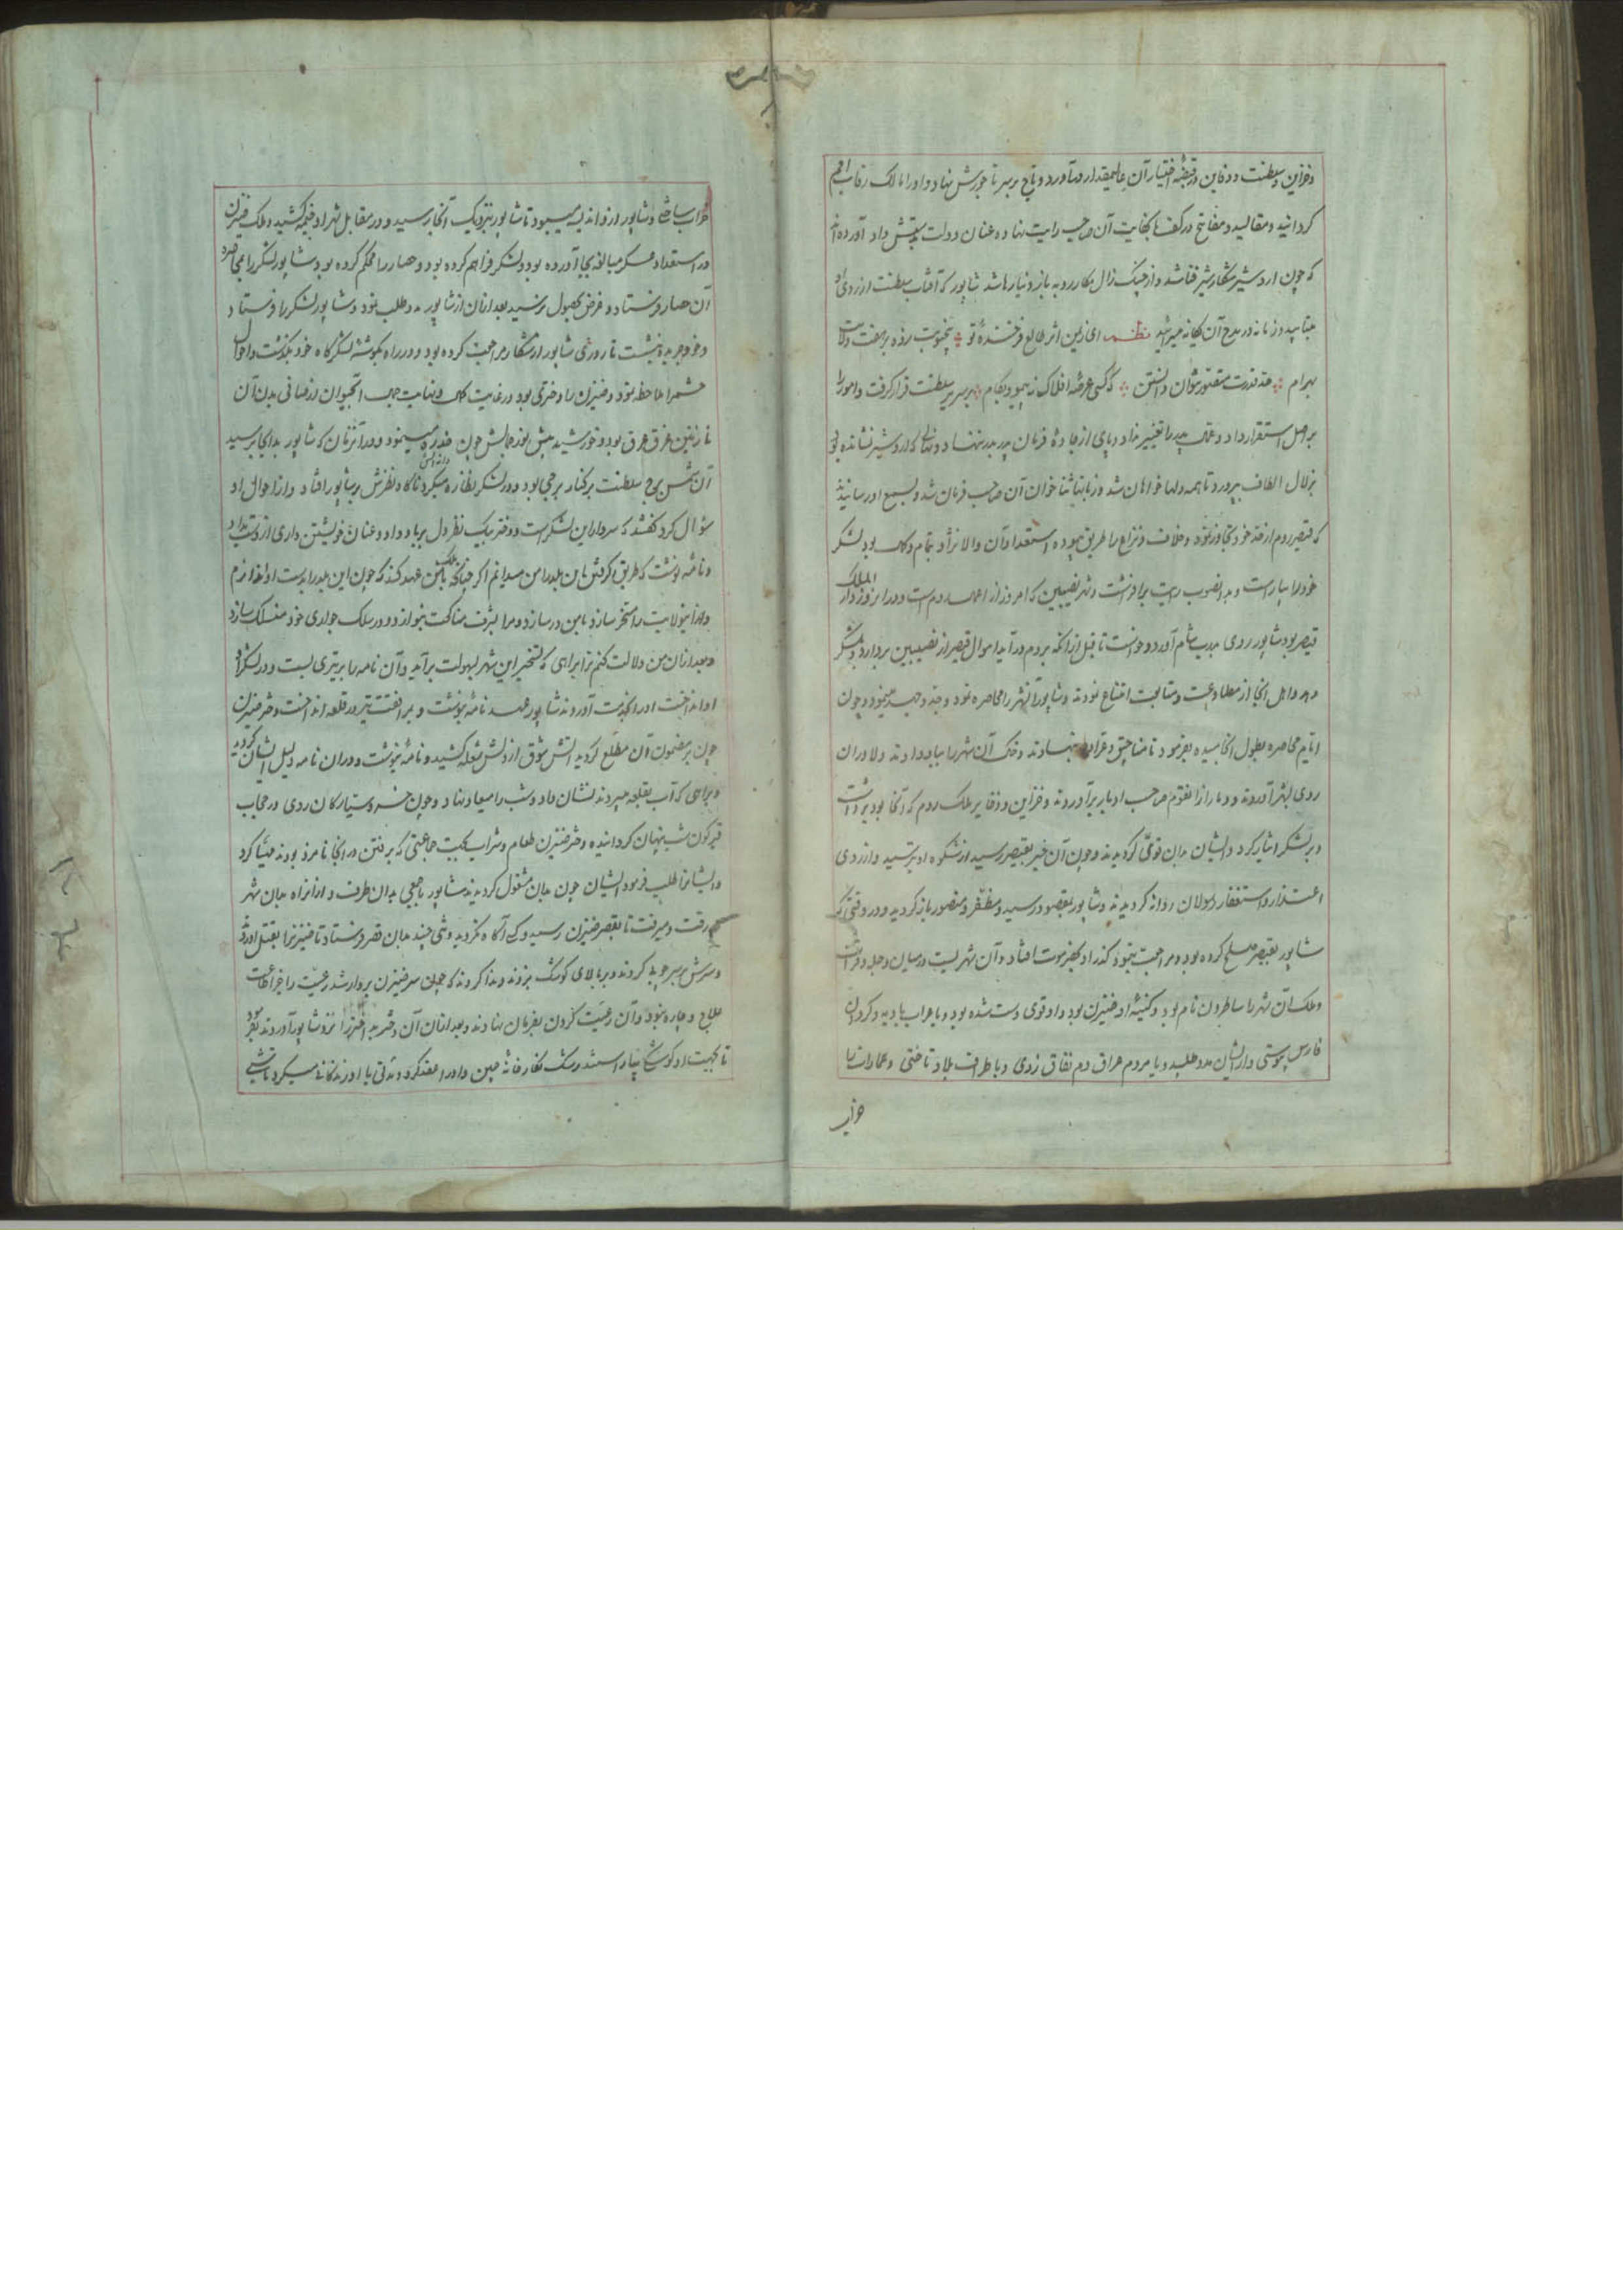 وخزاین وسلطنت ودفاین درقبضهٔ اختیار آن عالمیقدار درآورد وتاج برسر تاجورش نهاد واورا مالک رقاب امم
کردانید ومقالید ومفاتیح درکف با کفایت آن صاحب رایت نهاده عنان دولت بدستش داد آورده اند
که چون اردشیر شکار شیر فنا شد واز چنک زال مکار روبه باز دنیا رها شد شاپور که آفتاب سلطنت از روی او
میتابید وزمانه در مدح آن یکانه میسرائید نظم ای زمین اثر طالع فرخندهٔ تو
بهرام حد قدرت نتوان دانستن که کسی عرصهٔ افلاک نه پیمود بکام برسریر سلطنت قرار کرفت وامور را
بر اصل استقرار داد وعمال پدر را تغییر نداد وپای از جادهٔ فرمان پدر بدر ننهاد ونهالی که اردشیر نشانده بود
بزلال الطاف بپرورد تا همه دلها خواهان شد وزبانها ثناخوان آن صاحب فرمان شد وبسمع او رسانیدند
که قیصر روم از حد خود تجاوز نمود وخلاف ونزاع را طریق پیموده استعداد آن والا نژاد بتمام وکمال بود لشکر
خود را بیاراست وبدانصوب رایت برافراشت وشهر نصیبین که امروز از اعمال روم است ودر انروز دار الملک
قیصر بود شاپور روی بدیار شام آورد وخواست تا قبل از انکه بروم درآید اموال قیصر از نصیبین بردارد وبلشکر
دهد واهل انجا از مطاوعت ومتابعت امتناع نمودند وشاپور آنشهر را محاصره نمود وجد وجهد مینمود وچون
ایام محاصره بطول انجامیده بفرمود تا مناجیق وعراده بنهادند وخاک آن شهر را بباد دادند ودلاوران
روی بشهر آوردند ودمار از آنقوم صاحب ادبار برآوردند وخزاین وذخایر ملک روم که آنجا بود برداشت
وبر لشکر ایثار کرد وایشان بدان قوی کردیدند وچون آن خبر بقیصر رسید از شکوه او بترسید واز روی
اعتذار واستغفار رسولان روانه کردیدند وشاپور بمقصود رسید ومظفر ومنصور باز کردید ودر وقتی که
شاپور بقیصر صلح کرده بود ومراجعت مینمود کذر او بحضرموت افتاد وآن شهریست در میان دجله وفرات
وملک آن شهر را ساطرون نام بود وکنیهٔ او ضیزن بود واو قوی دست شده بود وبا اعراب بادیه وکردان
فارس پیوستی واز ایشان مدد طلبید وبا مردم عراق دم نفاق زدی وبا طراف بلاد تاختی وعمارات را
خراب
خراب ساختی وشاپور ازو اندیشه میبود تا شاپور بنزدیک آنجا رسید ودر مقابل شهر او خیمه کشید وملک ضیزن
در استعداد عسکر مبالغه بجا آورده بود ولشکر فراهم کرده بود وحصار را محکم کرده بود شاپور لشکر را بمحاصرهٔ
آن حصار فرستاد وغرض بحصول نرسید بعد ازان از شاپور مدد طلب نمود وشاپور لشکر را فرستاد
وخود جریده بنشست تا روزی شاپور از شکار مراجعت کرده بود ودر راه بکوشهٔ لشکرگاه خود بکذشت واحوال
حشم را ملاحظه نمود وضیزن را دختری بود در غایت کمال ونهایت جمال
نازنین غرق عرق بود وخورشید پیش نور جمالش چون ذره مینمود ودر آنزمان که شاپور بدانجا برسید
آن شمس برج سلطنت برکنار برجی بود ودر لشکر نظاره میکرد ناکاه نظرش برشاپور افتاد واز احوال او
سؤال کرد کفتند که سردار این لشکر است ودختر بیک نظر دل برباد داد وعنان خویشتن داری از دست بداد
ونامهٔ نوشت که طریق کرفتن این بلد را من میدانم اکر چنانکه ملک با من عهد کند که چون این بلد را بدست
واینولایت را مسخر سازد با من درسازد ومرا بشرف مناکحت بنوازد ودر سلک جواری خود منسلک سازد
وبعد ازان من دلالت کنم ترا براهی که تسخیر این شهر بسهولت برآید وآن نامه را بر تیری بست ودر لشکر او
او انداخت اورا بخدمت آوردند شاپور عهد نامهٔ بنوشت وبر آن تیر در قلعه انداخت دختر ضیزن
چون بر مضمون آن مطلع کردید آتش شوق از دلش شعله کشید ونامهٔ بنوشت ودران نامه دلیل ایشان کردید
وبراهی که آب بقلعه میبردند نشان داد وشب را میعاد نهاد وچون خسرو سیارکان روی در حجاب
قیرکون شب پنهان کردانیده دختر ضیزن طعام وشراب بجهت جماعتی که برفتن در آنجا نامزد بودند مهیا کرد
وایشانرا طلب فرمود ایشان چون بدان مشغول کردیدند شاپور با جمعی بدان طرف واز انراه بدان شهر
رفت ومیرفت تا بقصر ضیزن رسید وکسی آکاه نکردید وتنی چند بدان قصر فرستاد تا ضیزن را بقتل آورند
وسرش بر سر چوب کردند وبر بالای کوشک بردند وندا کردند که چون سر ضیزن بردار شد رعیت را جز اطاعت
علاج وچاره نبود وآن رعیت کردن بفرمان نهادند وبعد ازان آن دختر بداختر را نزد شاپور آوردند بفرمود
تا بجهت او کوشکی بیاراستند رشک نکارخانهٔ چین واورا عقد کرد ومدتی با او زندکانی میکرد تا شبی